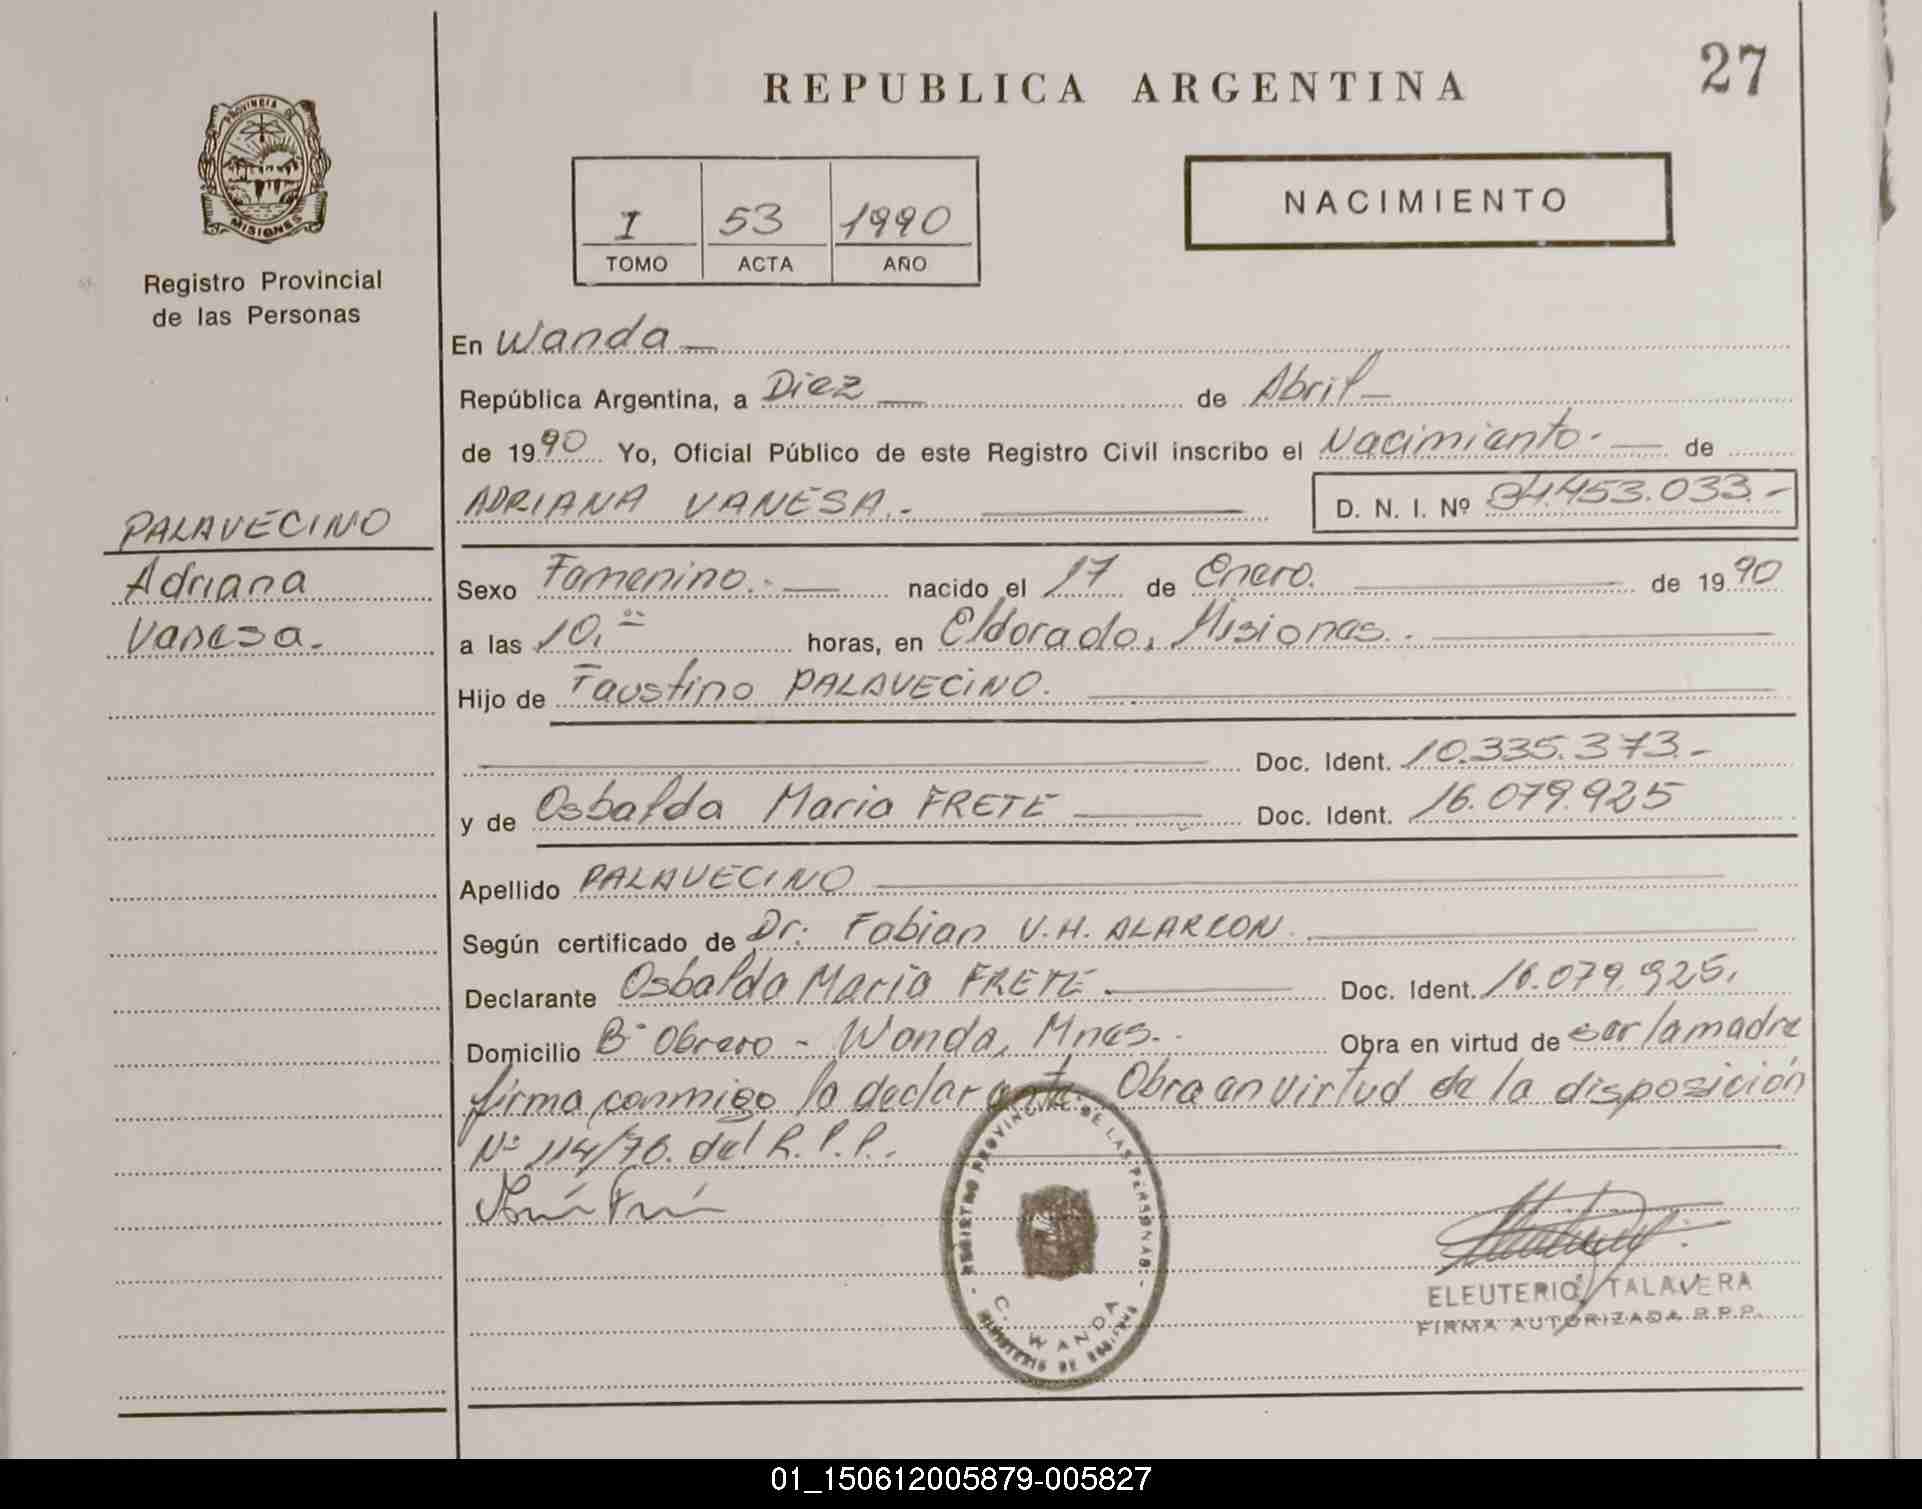 27
REPUBLICA ARGENTINA
PROVINCIA DE
MISIONES
Registro Provincial
de las Personas
I 53 1990
TOMO ACTA AÑO
NACIMIENTO
En Wanda
República Argentina, a Diez de Abril
de 1990 Yo, Oficial Público de este Registro Civil inscribo el Nacimiento.- de
ADRIANA VANESA.- D. N. I. Nº 34.453.033.-
PALAVECINO
Adriana
Vanesa.
Sexo Femenino.- nacido el 17 de Enero. de 1990
a las 10,00 horas, en Eldorado, Misiones.
Hijo de Faustino PALAVECINO.
Doc. Ident. 10.335.373.-
y de Osbalda Maria FRETE Doc. Ident. 16.079.925
Apellido PALAVECINO
Según certificado de Dr. Fabian V.H. ALARCON
Declarante Osbalda Maria FRETE. Doc. Ident. 16.079.925.
Domicilio Bº Obrero - Wanda, Mnes.- Obra en virtud de ser la madre
firma conmigo la declarante. Obra en virtud de la disposición
Nº 114/76. del R.P.P..
REGISTRO PROVINCIAL DE LAS PERSONAS
C. WANDA
MINISTERIO DE
ELEUTERIO TALAVERA
FIRMA AUTORIZADA R.P.P.
01_150612005879-005827